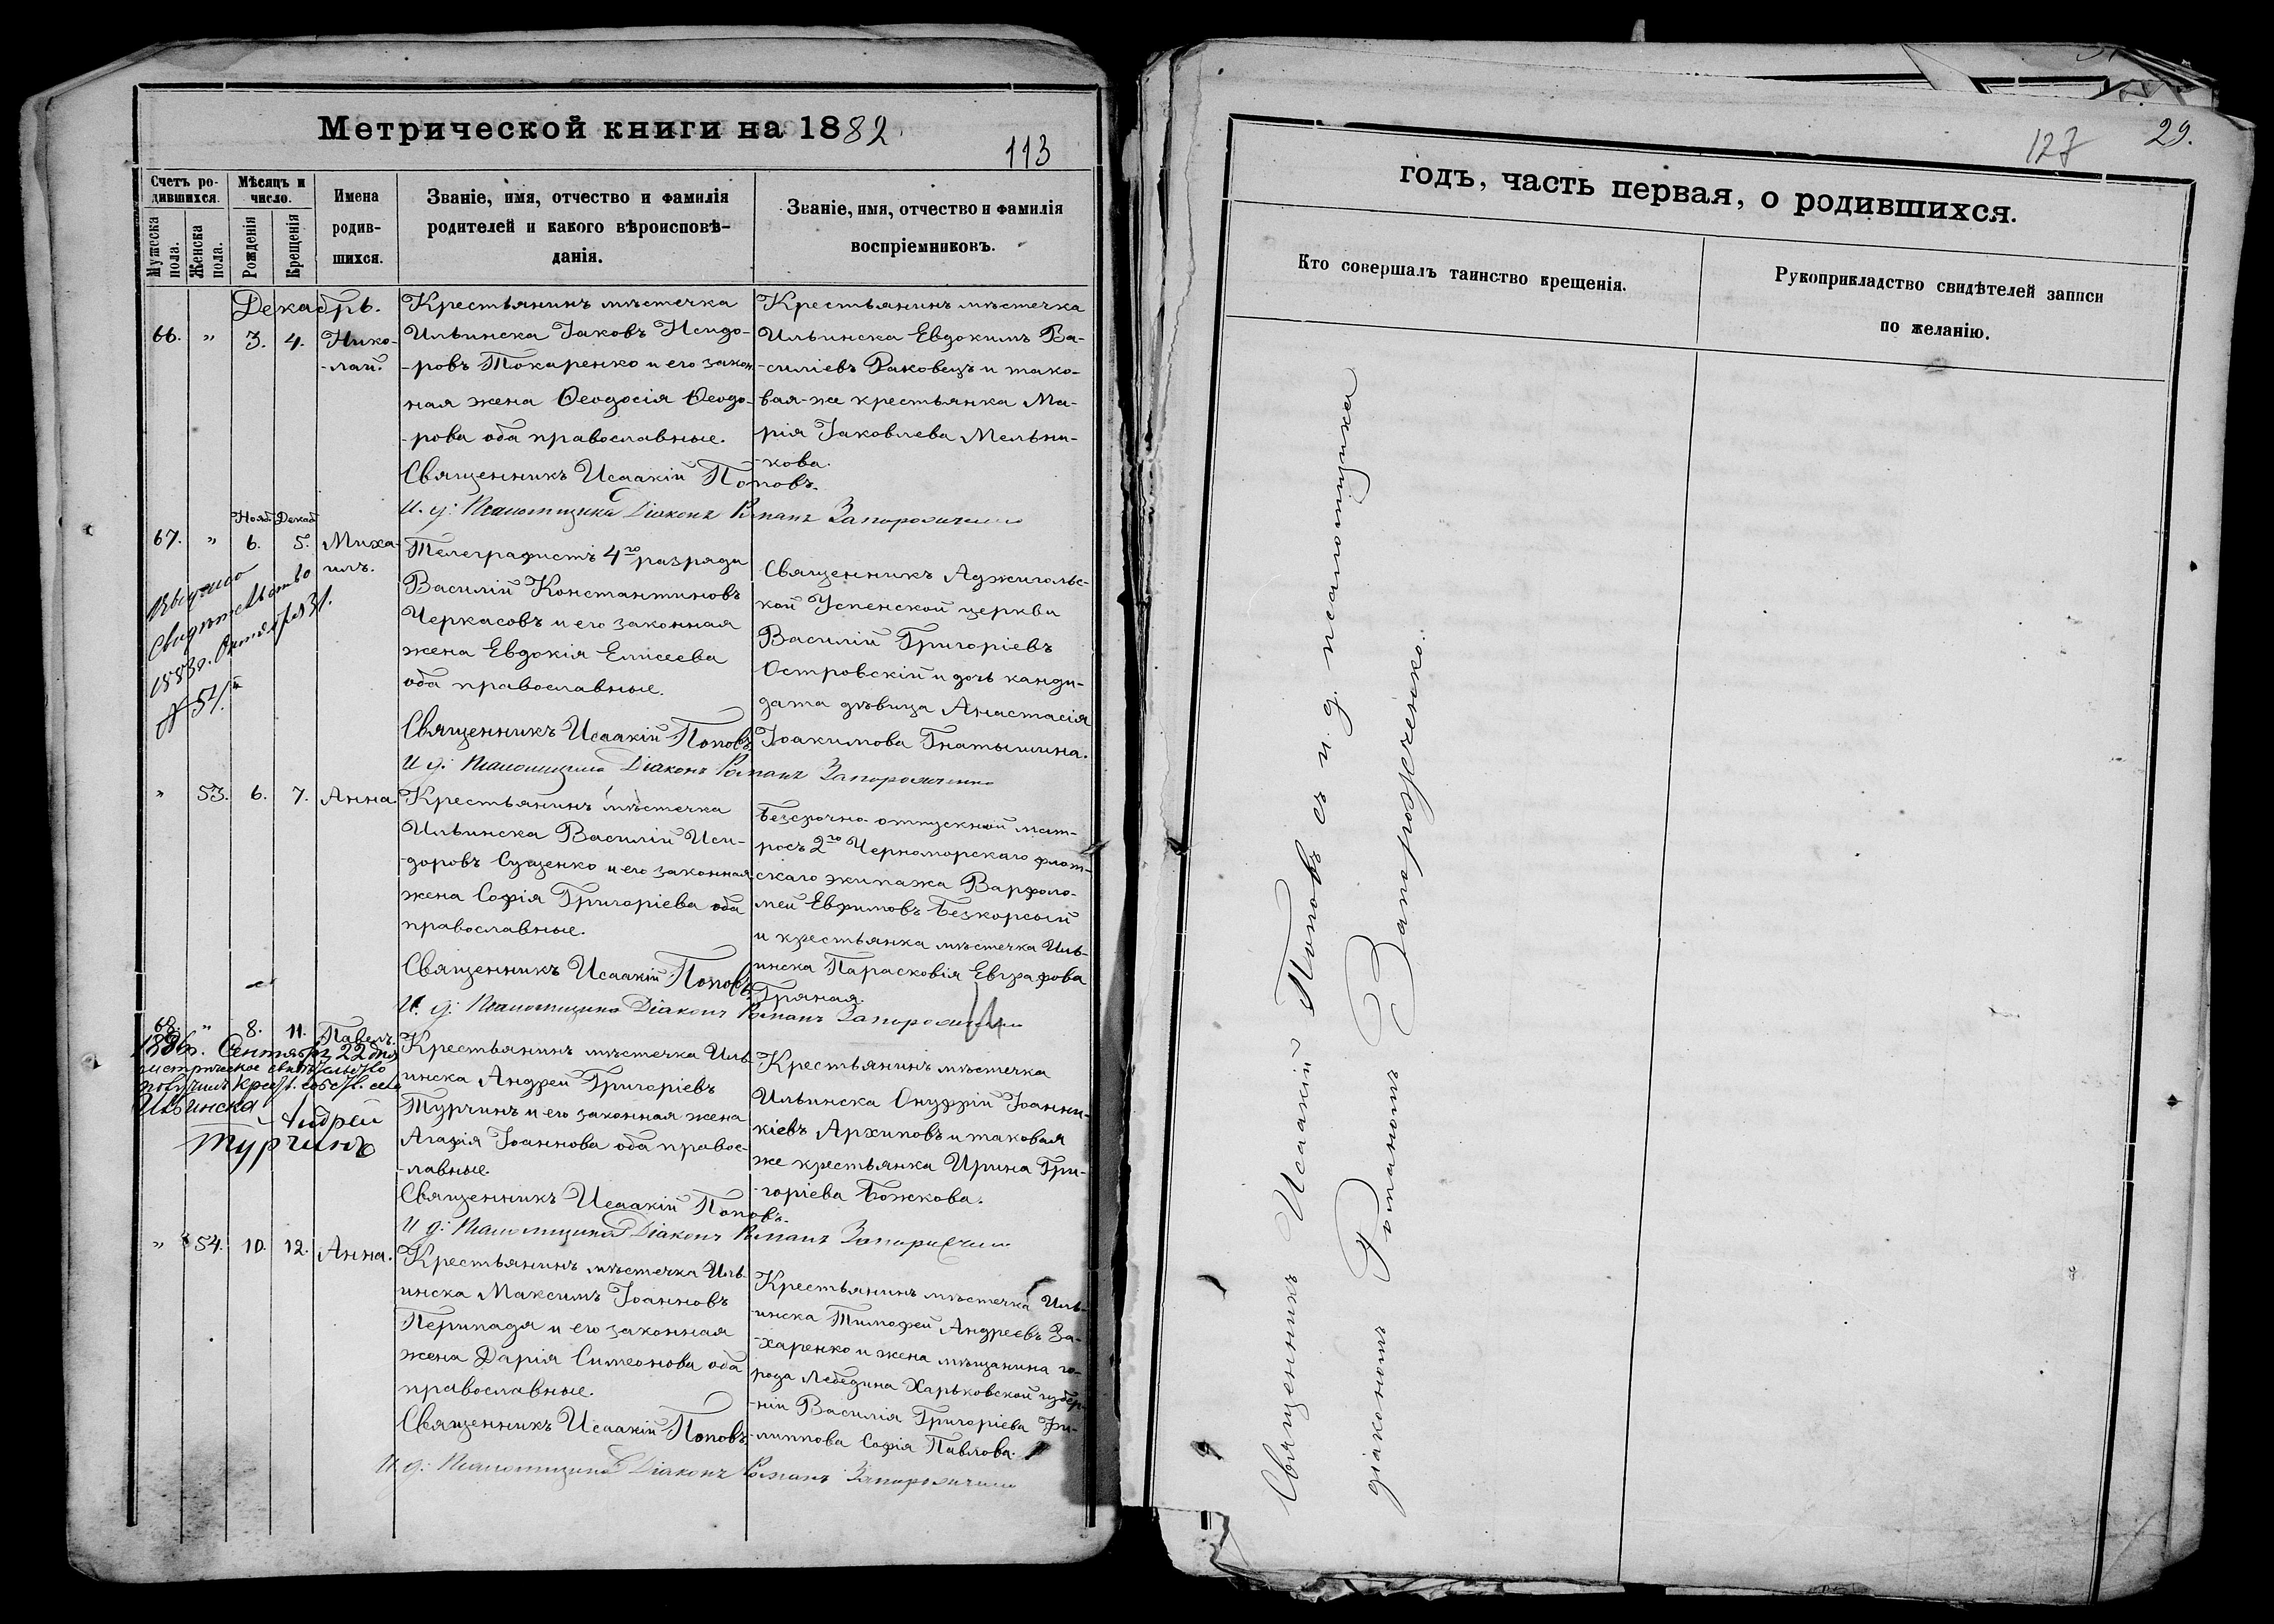 Метрической книги на 1882
113
Счетъ ро-
дившихся.
Мѣсяцъ и
число.
Имена
родив-
шихся.
Званіе, имя, отчество и фамилія
родителей и какого вѣроисповѣ-
данія.
Званіе, имя, отчество и фамилія
воспріемниковъ.
Мужеска
пола.
Женска
пола.
Рожденія
Крещенія
Декабрь.
66. " 3. 4. Нико-
-лай.
Крестьянинъ мѣстечка
Ильинска Іаковъ Исидо-
-ровъ Токаренко и его закон
ная жена Ѳеодосія Ѳеодо-
-рова оба православные.
Священникъ Исаакій Поповъ.
И. д: Псаломщика Діаконъ Романъ Запорожченко
Крестьянинъ мѣстечка
Ильинска Евдокимъ Ва-
-силіевъ Раковецъ и тако-
вая-же крестьянка Ма-
рія Іаковлева Мельни-
-кова.
Нояб. Декаб
67. " 6. 5. Миха-
илъ.
Выдано
Свидѣтельство
1883г. Октября 31.
№ 51.
Телеграфистъ 4го разряда
Василій Константиновъ
Черкасовъ и его законная
жена Евдокія Елисеева
оба православные.
Священникъ Исаакій Поповъ
И д: Псаломщика Діаконъ Романъ Запорожченко
Священникъ Аджигольс-
кой Успенской церкви
Василій Григоріевъ
Островскій и дочь канди-
дата дѣвица Анастасія
Іоакимова Гнатышина.
" 53. 6. 7. Анна.
Крестьянинъ мѣстечка
Ильинска Василій Иси-
-доровъ Сущенко и его законная
жена Софія Григоріева оба
православные.
Священникъ Исаакій Поповъ
И. д: Псаломщика Діаконъ Романъ Запорожченко
Безсрочно-отпускной мат-
росъ 2го Черноморскаго флот-
скаго экипажа Варфоло-
мей Евфимовъ Безкорсый
и крестьянка мѣстечка Иль-
инска Парасковія Евграфова
Гряная.
68. " 8. 11. Павелъ.
1896г. Сентября 22 дня
метрическое свидѣтельство
получилъ крест. собст. села
Ильинска Андрей
Турчинъ
Крестьянинъ мѣстечка Иль-
инска Андрей Григоріевъ
Турчинъ и его законная жена
Агафія Іоаннова оба правос-
-лавные.
Священникъ Исаакій Поповъ.
И д: Псаломщика Діаконъ Романъ Запорожченко
Крестьянинъ мѣстечка
Ильинска Онуфрій Іоанни-
кіевъ Архиповъ и таковая
же крестьянка Ирина Гри-
-горіева Божкова.
" 54. 10. 12. Анна.
Крестьянинъ мѣстечка Иль-
инска Максимъ Іоанновъ
Перипадя и его законная
жена Дарія Симеонова оба
православные.
Священникъ Исаакій Поповъ.
И д: Псаломщика Діаконъ Романъ Запорожченко
Крестьянинъ мѣстечка Иль-
-инска Тимофей Андреевъ За-
-харенко и жена мѣщанина го-
рода Лебедина Харьковской губер-
-ніи Василія Григоріева Фи-
-липпова Софія Павлова.
127 29.
годъ, часть первая, о родившихся.
Кто совершалъ таинство крещенія.
Рукоприкладство свидѣтелей записи
по желанію.
Священникъ Исаакій Поповъ съ и. д. псаломщика
діакономъ Романомъ Запорожченко.